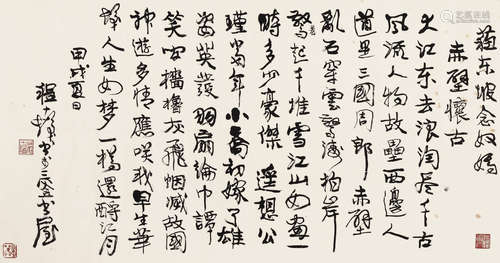 蘇東坡念奴嬌
赤壁懷古
大江東去浪淘尽千古
風流人物故壘西邊人
道是三國周郎赤壁
亂石穿雲驚濤拍岸
起千堆雪江山如畫一
時多少豪傑遥想公
瑾當年小喬初嫁了雄
姿英發羽扇綸巾譚
笑間檣櫓灰飛烟滅故國
神遊多情應咲我早生華
人生如夢一樽還酹江月
甲戌夏日
程
書屋